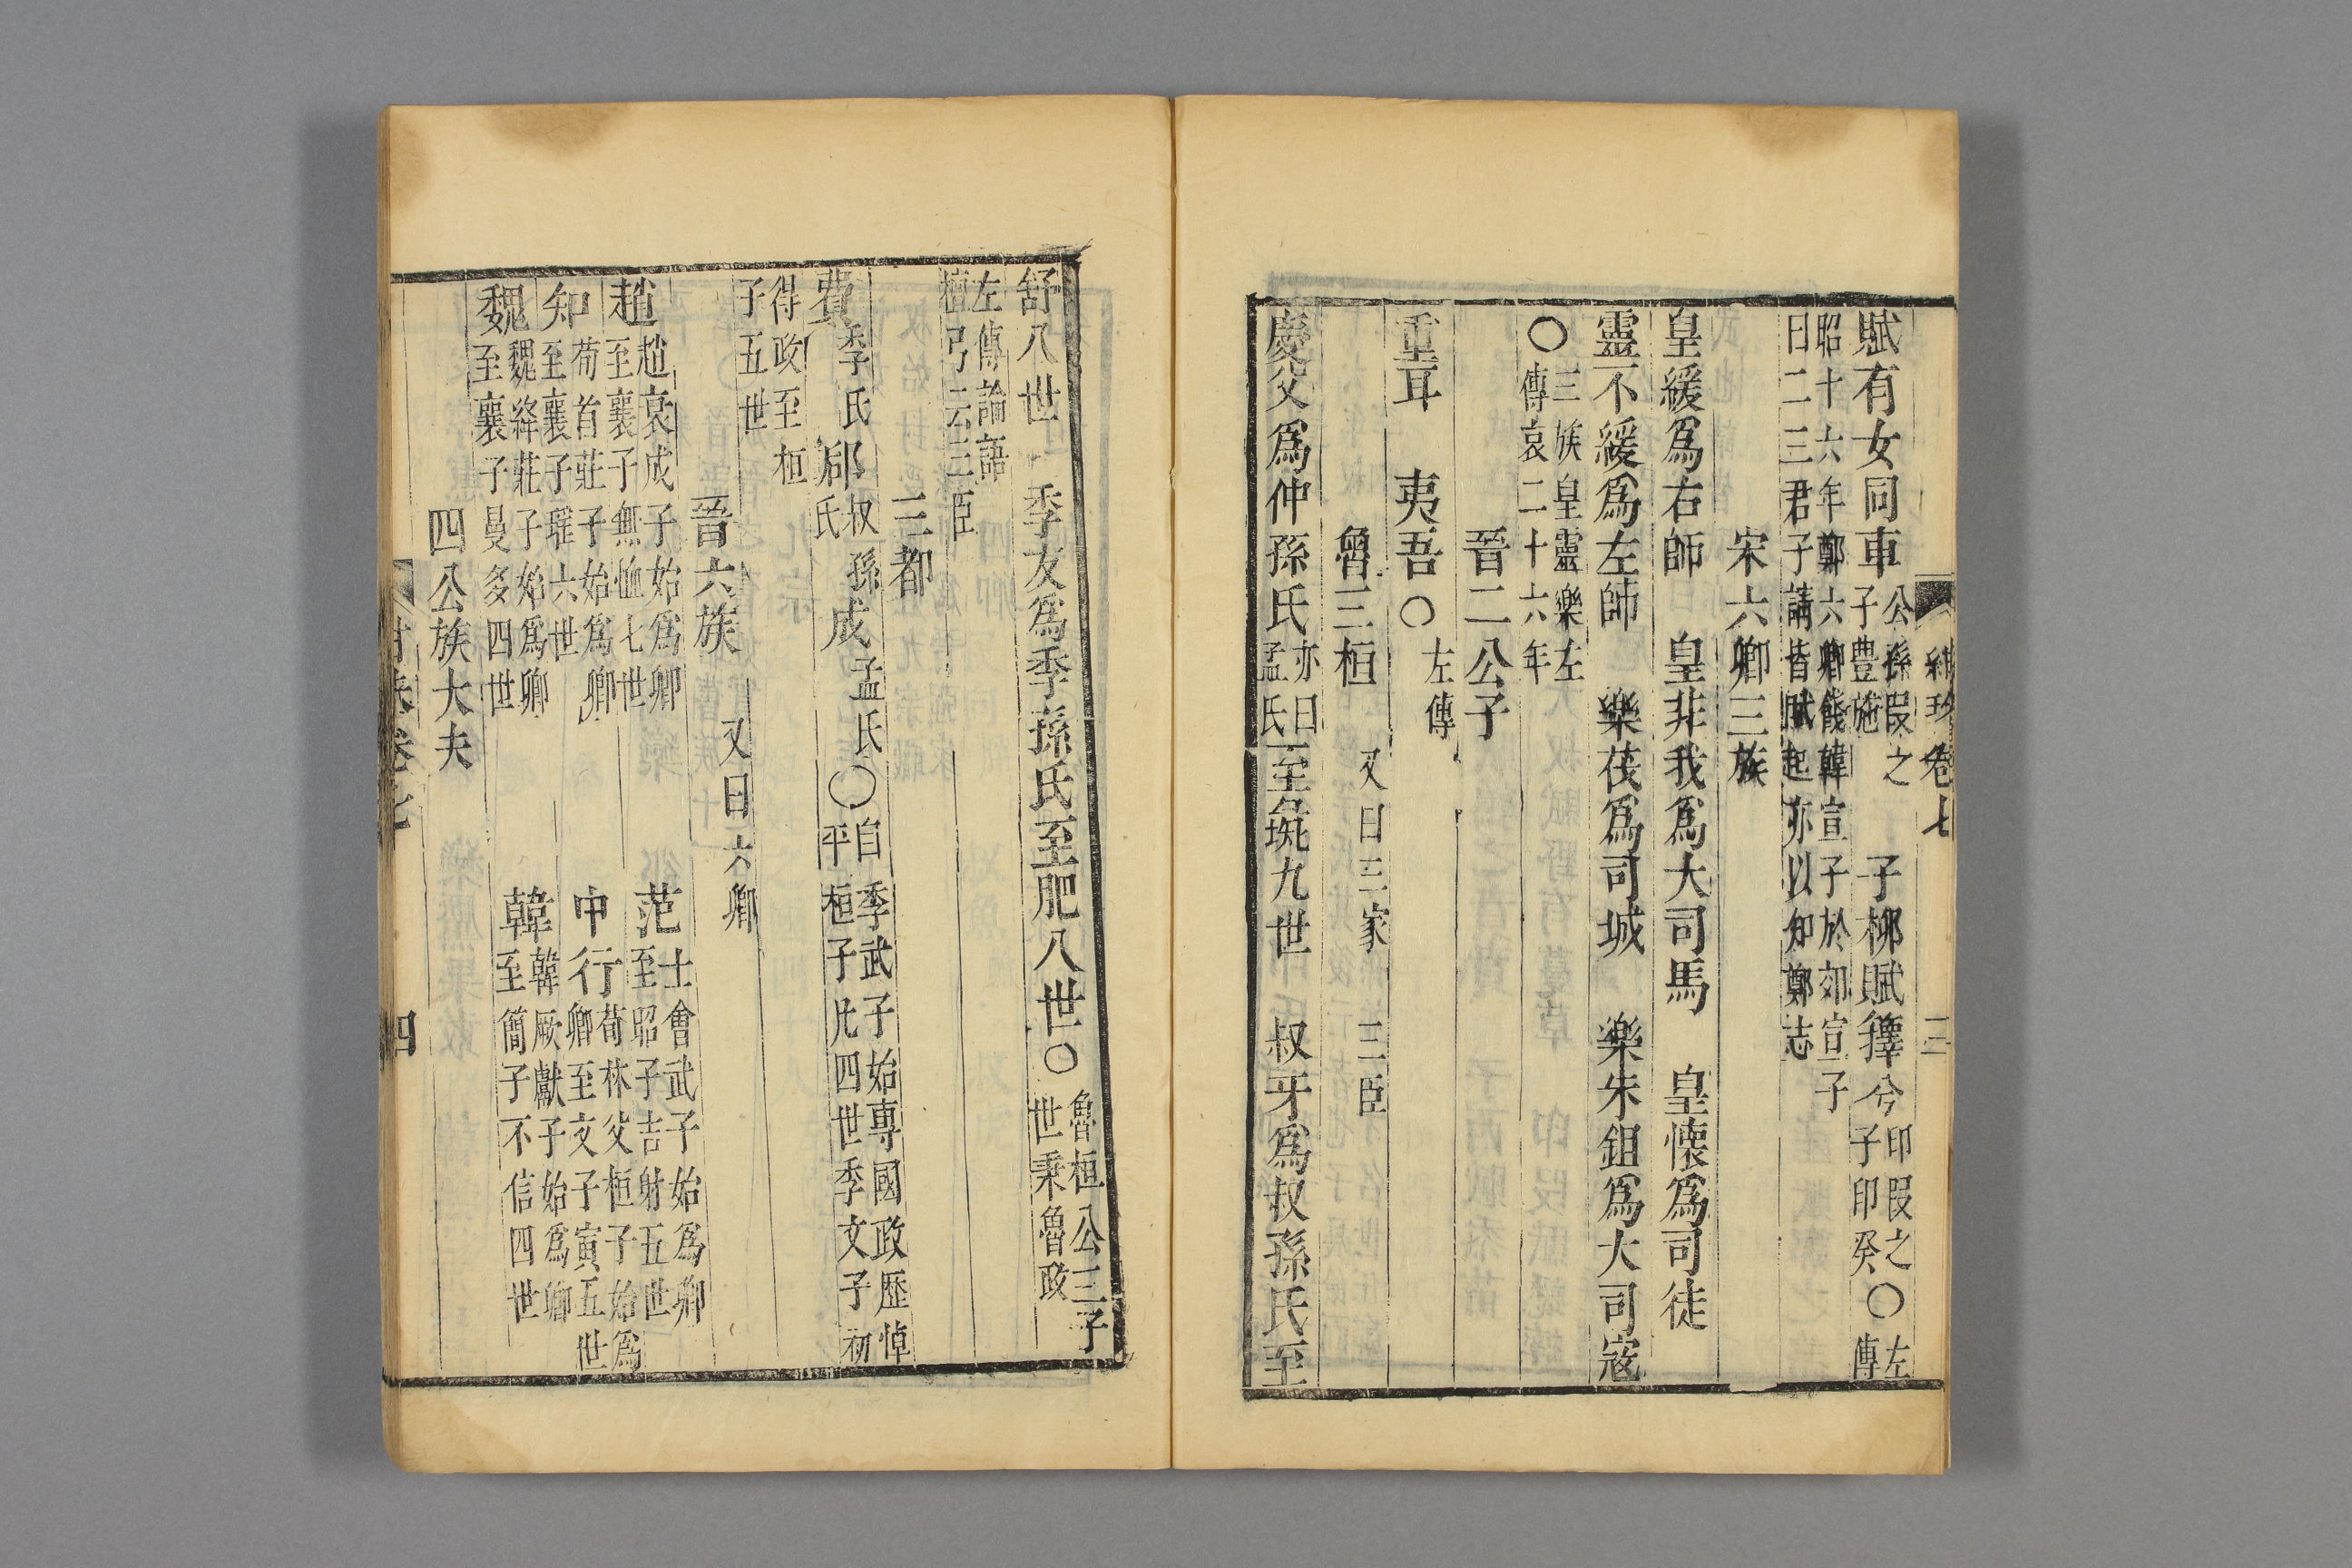 紺珠卷七 三
賦有女同車公孫段之子豐施 子柳賦籜兮印段之子印癸○左傳
昭十六年鄭六卿餞韓宣子於郊宣子
曰二三君子請皆賦起亦以知鄭志
宋六卿三族
皇緩爲右師 皇非我爲大司馬 皇懷爲司徒
靈不緩爲左師 樂茷爲司城 樂朱鉏爲大司寇
○三族皇靈樂左傳哀二十六年
晉二公子
重耳 夷吾○左傳
魯三桓 又曰三家 三臣
慶父爲仲孫氏亦曰孟氏至彘九世 叔牙爲叔孫氏至
舒八世 季友爲季孫氏至肥八世○魯桓公三子世秉魯政
左傳論語
檀弓云三臣
三都
費季氏 郈叔孫氏 成孟氏○自季武子始專國政歷悼平桓子凡四世季文子初
得政至桓
子五世
晉六族 又曰六卿
趙趙衰成子始爲卿至襄子無恤七世 范士會武子始爲卿至昭子吉射五世
知荀首莊子始爲卿至襄子瑶六世 中行荀林父桓子始爲卿至文子寅五世
魏魏絳莊子始爲卿至襄子曼多四世 韓韓厥獻子始爲卿至簡子不信四世
四公族大夫
卷七 四